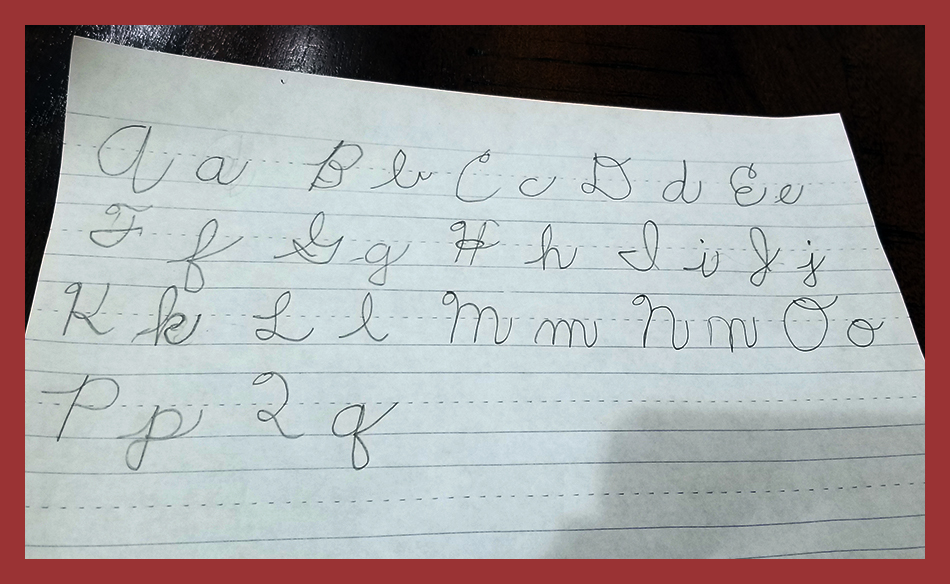 A a B b C c D d E e
F f G g H h I i J j
K k L l M m N n O o
P p Q q